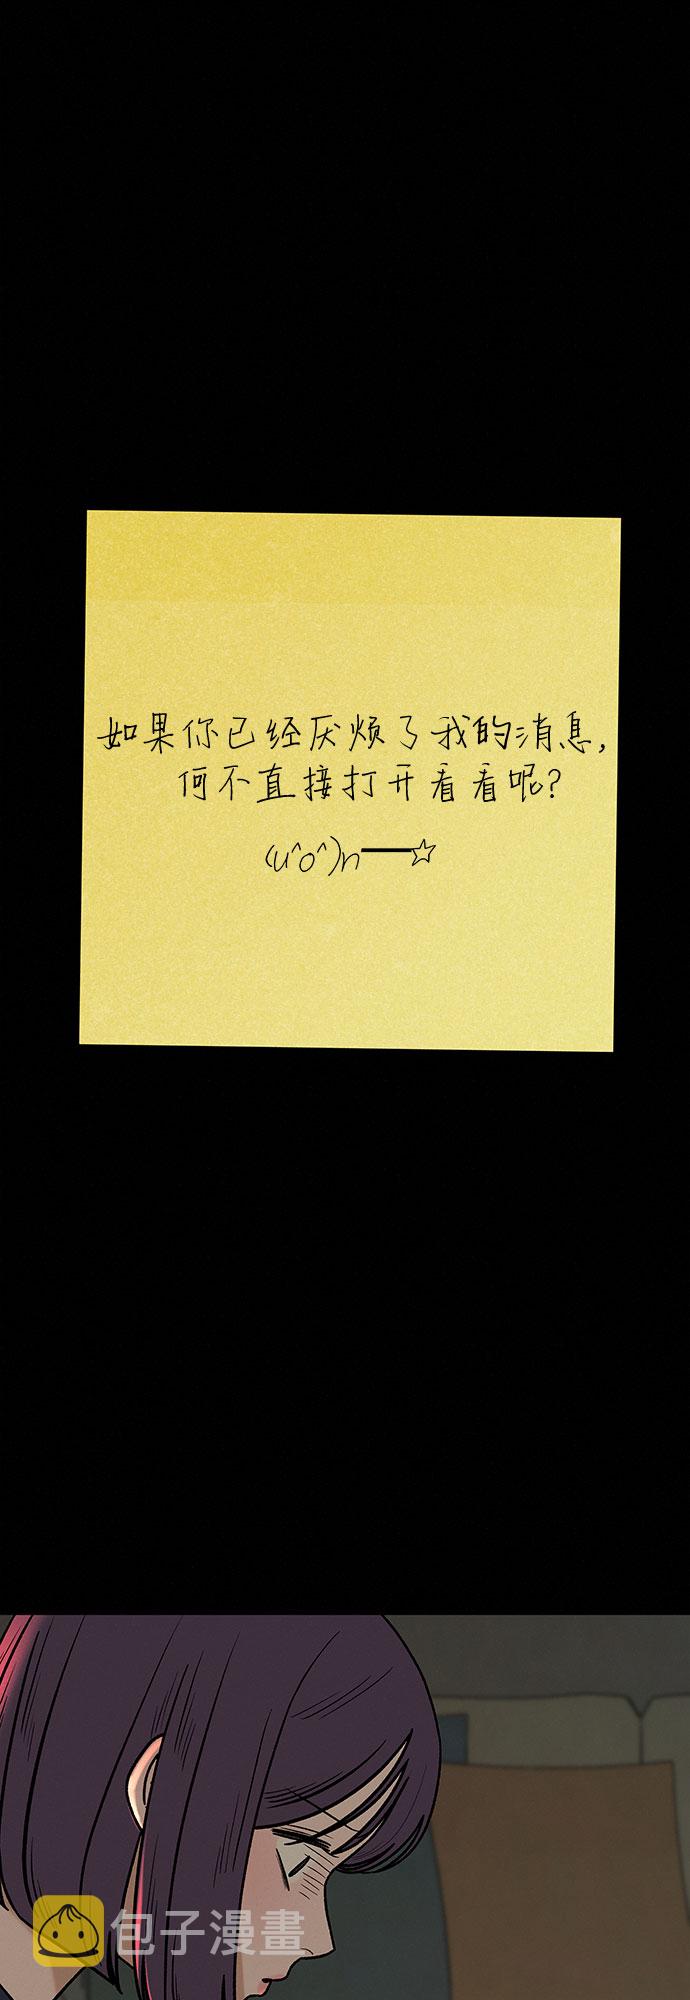 如果你已经厌烦了我的消息,
何不直接打开看看呢?
(u^o^)n━━☆
包子漫畫